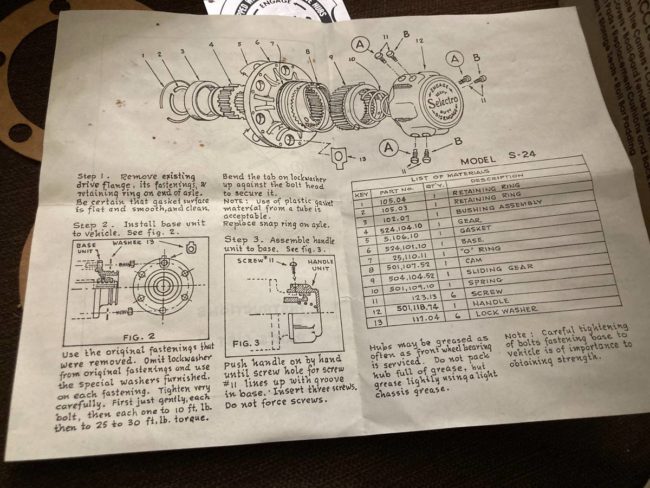 ENGAGE
1
2
3
4
5
6
7
8
9
10
11
12
A
B
A
B
A
B
11
11
13
ENGAGE
Selectro
MODEL S-24
Step 1. Remove existing
drive flange, its fastenings, &
retaining ring on end of axle.
Be certain that gasket surface
is flat and smooth, and clean.
Step 2. Install base unit
to vehicle. See fig. 2.
BASE
UNIT
WASHER 13
FIG. 2
Use the original fastenings that
were removed. Omit lockwasher
from original fastenings and use
the special washers furnished.
on each fastening. Tighten very
carefully. First just gently, each
bolt, then each one to 10 ft. lb.
then to 25 to 30 ft. lb. torque.
Bend the tab on lockwasher
up against the bolt head
to secure it.
NOTE: Use of plastic gasket
material from a tube is
acceptable.
Replace snap ring on axle.
Step 3. Assemble handle
unit to base. See fig. 3.
SCREW #11
HANDLE
UNIT
FIG. 3
Push handle on by hand
until screw hole for screw
#11 lines up with groove
in base. Insert three screws.
Do not force screws.
LIST OF MATERIALS
KEY PART NO. QT'Y. DESCRIPTION
1 105.04 1 RETAINING RING
2 105.03 1 RETAINING RING
3 102.07 1 BUSHING ASSEMBLY
4 524.104.10 1 GEAR
5 5.106.10 1 GASKET
6 524.101.10 1 BASE
7 25.110.11 1 "O" RING
8 501.107.52 1 CAM
9 504.104.52 1 SLIDING GEAR
10 501.109.10 1 SPRING
11 123.13 6 SCREW
12 501.118.74 1 HANDLE
13 117.04 6 LOCK WASHER
Hubs may be greased as
often as front wheel bearing
is serviced. Do not pack
hub full of grease, but
grease lightly using a light
chassis grease.
Note: Careful tightening
of bolts fastening base to
vehicle is of importance to
obtaining strength.